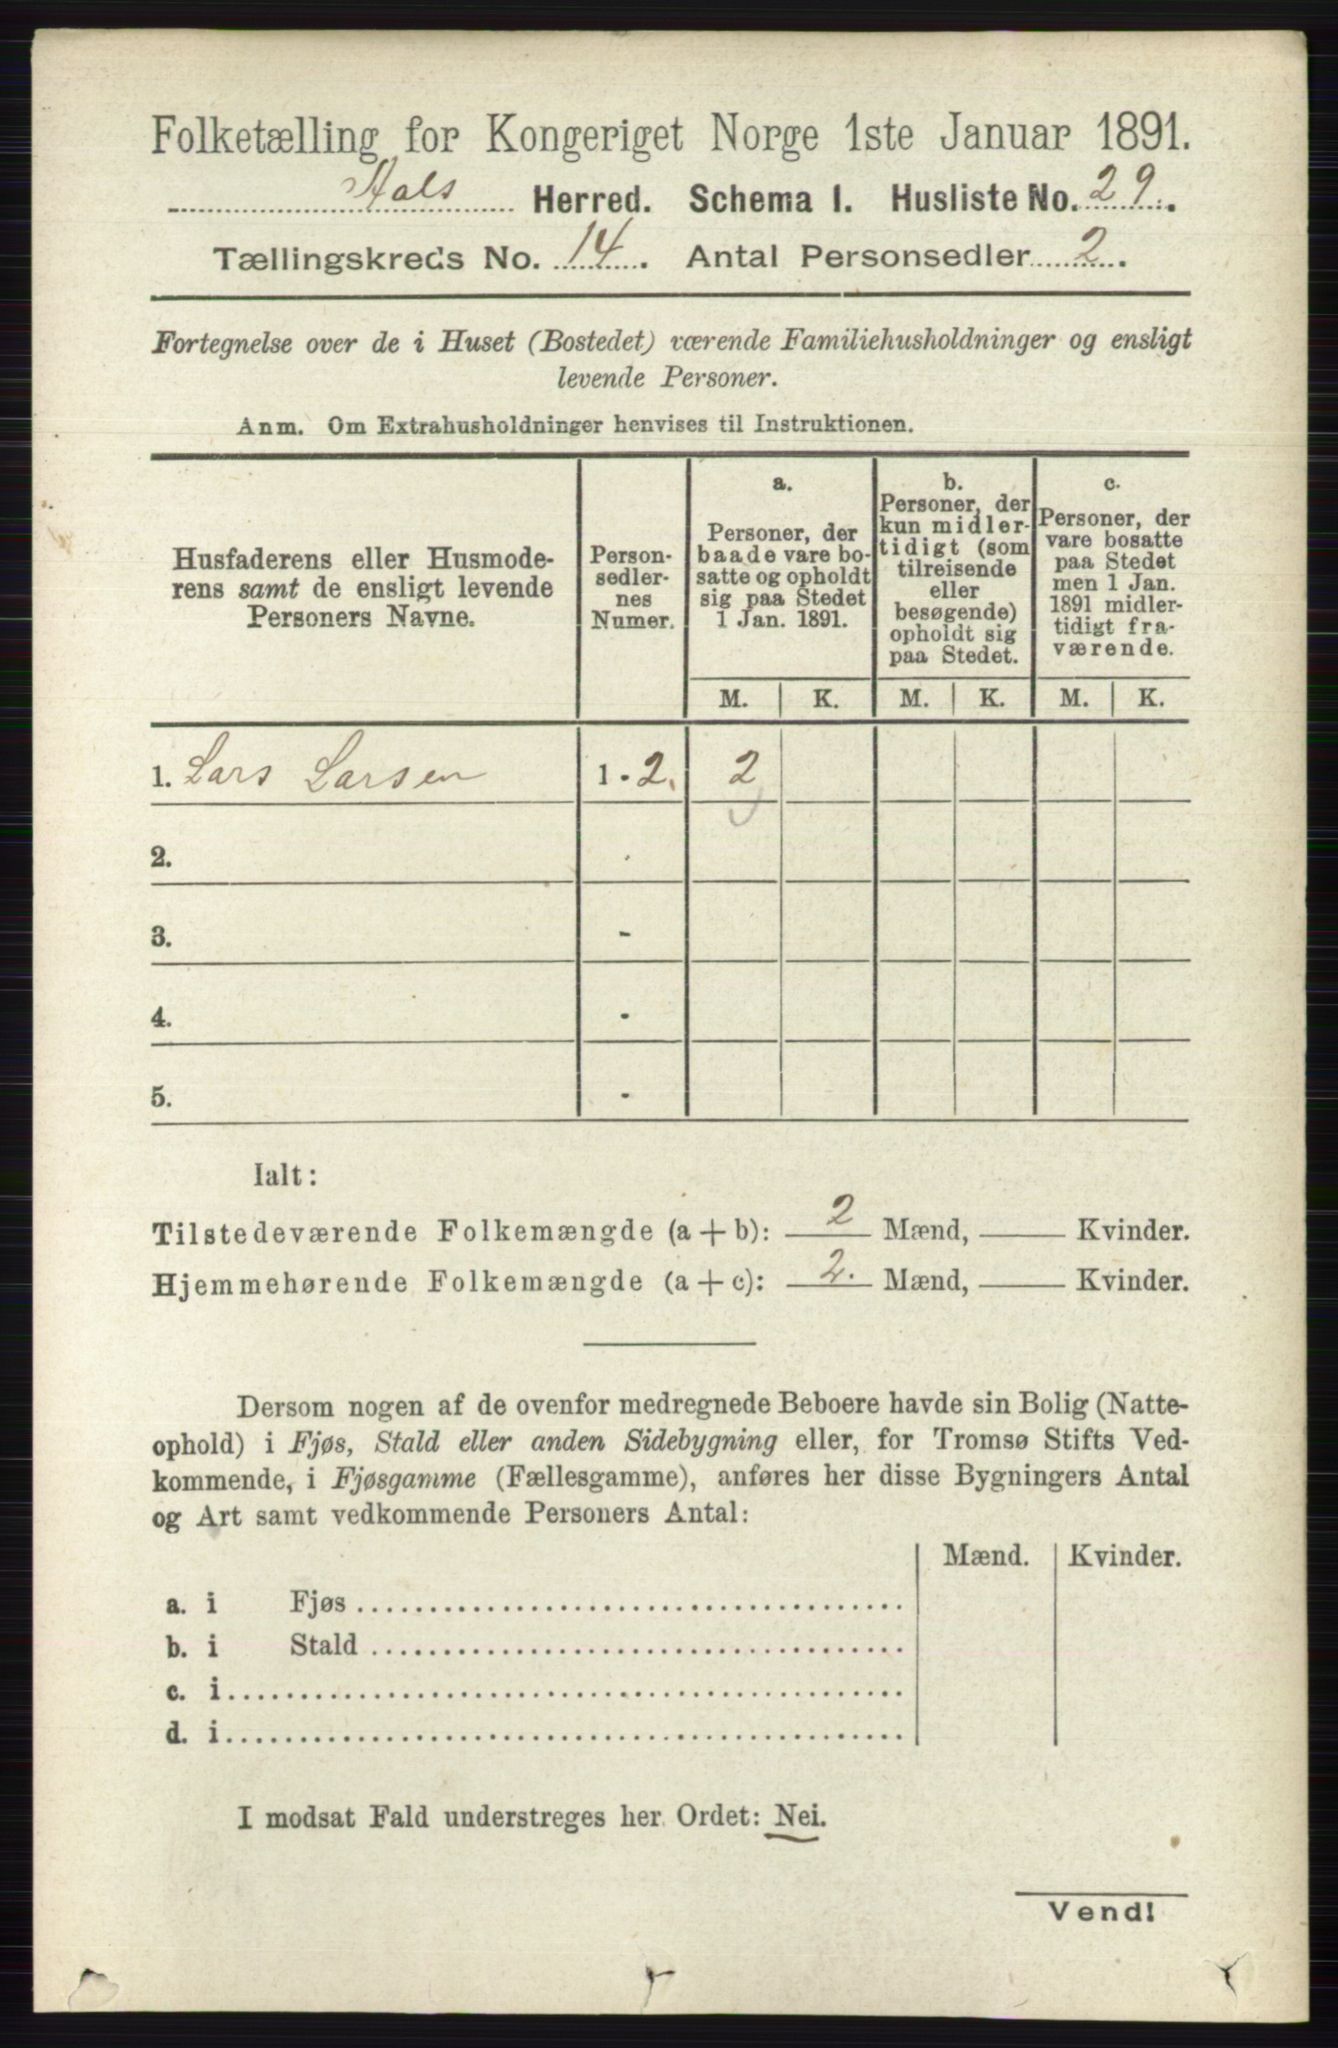 Folketælling for Kongeriget Norge 1ste Januar 1891.
Aals Herred. Schema I. Husliste No. 29.
Tællingskreds No. 14. Antal Personsedler 2.
Fortegnelse over de i Huset (Bostedet) værende Familiehusholdninger og ensligt
levende Personer.
Anm. Om Extrahusholdninger henvises til Instruktionen.
Husfaderens eller Husmode-
rens samt de ensligt levende
Personers Navne.
Person-
sedler-
nes
Numer.
a.
Personer, der
baade vare bo-
satte og opholdt
sig paa Stedet
1 Jan. 1891.
b.
Personer, der
kun midler-
tidigt (som
tilreisende
eller
besøgende)
opholdt sig
paa Stedet.
c.
Personer, der
vare bosatte
paa Stedet
men 1 Jan.
1891 midler-
tidigt fra-
værende.
M. K. M. K. M. K.
1. Lars Larsen 1 - 2. 2
2.
3. -
4. -
5. -
Ialt:
Tilstedeværende Folkemængde (a + b): 2 Mænd, Kvinder.
Hjemmehørende Folkemængde (a + c): 2. Mænd, Kvinder.
Dersom nogen af de ovenfor medregnede Beboere havde sin Bolig (Natte-
ophold) i Fjøs, Stald eller anden Sidebygning eller, for Tromsø Stifts Ved-
kommende, i Fjøsgamme (Fællesgamme), anføres her disse Bygningers Antal
og Art samt vedkommende Personers Antal:
Mænd. Kvinder.
a. i Fjøs
b. i Stald
c. i
d. i
I modsat Fald understreges her Ordet: Nei.
Vend!